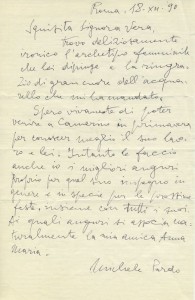 Roma, 18.XII.90
Squisita Signora Vera,
Trovo deliziosamente
ironico l'archetipo femminile
che lei dipinge e la ringra-
zio di gran cuore dell'acqua-
rello che mi ha mandato.
Spero vivamente di poter
venire a Camerino in primavera
per conoscer meglio il suo lavo-
ro e lei. Intanto le faccio
anche io i migliori auguri
proprio per quel suo impegno in
genere e in specie per le prossime
feste, insieme con tutti i suoi.
Ai quali auguri si associa na-
turalmente la mia amica Anna
Maria.